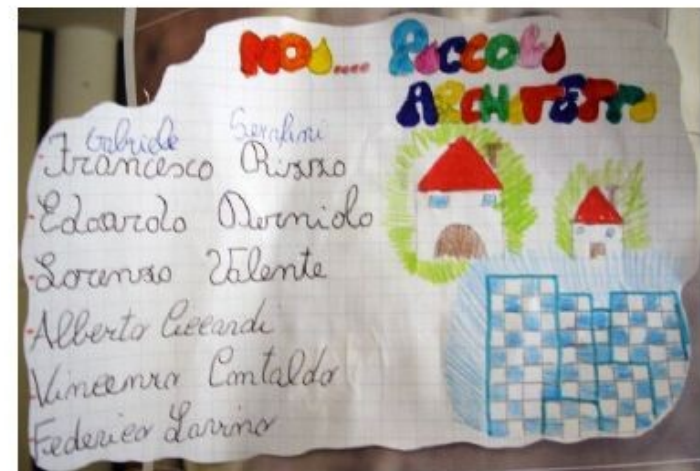 NOI.... PICCOLI
ARCHITETTI
Gabriele Serafini
Francesco Rizzo
Edoardo
Lorenzo Valente
Alberto
Vincenzo Contaldo
Federico